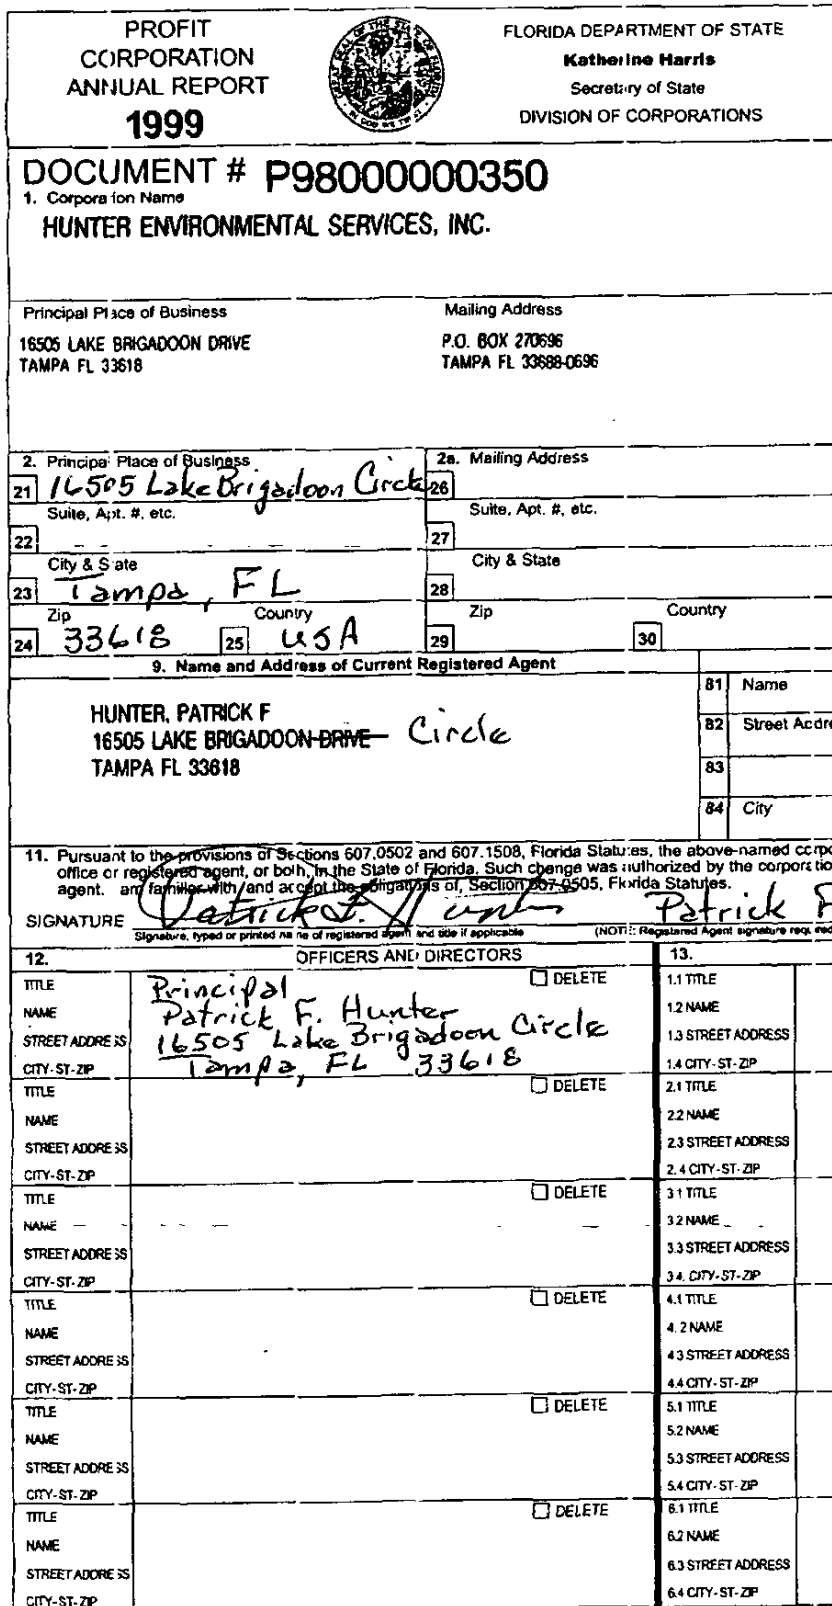 PROFIT
CORPORATION
ANNUAL REPORT
1999
FLORIDA DEPARTMENT OF STATE
Katherine Harris
Secretary of State
DIVISION OF CORPORATIONS
DOCUMENT # P98000000350
1. Corporation Name
HUNTER ENVIRONMENTAL SERVICES, INC.
Principal Place of Business
Mailing Address
16505 LAKE BRIGADOON DRIVE
TAMPA FL 33618
P.O. BOX 270696
TAMPA FL 33688-0696
2. Principal Place of Business
2a. Mailing Address
21 16505 Lake Brigadoon Circle
26
Suite, Apt. #, etc.
Suite, Apt. #, etc.
22
27
City & State
City & State
23 Tampa, FL
28
Zip
Country
Zip
Country
24 33618
25 USA
29
30
9. Name and Address of Current Registered Agent
HUNTER, PATRICK F
16505 LAKE BRIGADOON DRIVE Circle
TAMPA FL 33618
81 Name
82 Street Addre
83
84 City
11. Pursuant to the provisions of Sections 607.0502 and 607.1508, Florida Statutes, the above-named corpo
office or registered agent, or both, in the State of Florida. Such change was authorized by the corporatio
agent. am familiar with, and accept the obligations of, Section 607.0505, Florida Statutes.
SIGNATURE Patrick F. Hunter Patrick F
Signature, typed or printed name of registered agent and title if applicable
(NOTE: Registered Agent signature required
12. OFFICERS AND DIRECTORS
13.
TITLE Principal DELETE
NAME Patrick F. Hunter
STREET ADDRESS 16505 Lake Brigadoon Circle
CITY-ST-ZIP Tampa, FL 33618
1.1 TITLE
1.2 NAME
1.3 STREET ADDRESS
1.4 CITY-ST-ZIP
TITLE DELETE
NAME
STREET ADDRESS
CITY-ST-ZIP
2.1 TITLE
2.2 NAME
2.3 STREET ADDRESS
2.4 CITY-ST-ZIP
TITLE DELETE
NAME
STREET ADDRESS
CITY-ST-ZIP
3 1 TITLE
3 2 NAME
3.3 STREET ADDRESS
3 4. CITY-ST-ZIP
TITLE DELETE
NAME
STREET ADDRESS
CITY-ST-ZIP
4.1 TITLE
4. 2 NAME
4 3 STREET ADDRESS
4.4 CITY-ST-ZIP
TITLE DELETE
NAME
STREET ADDRESS
CITY-ST-ZIP
5.1 TITLE
5.2 NAME
5.3 STREET ADDRESS
5.4 CITY-ST-ZIP
TITLE DELETE
NAME
STREET ADDRESS
CITY-ST-ZIP
6.1 TITLE
6.2 NAME
6.3 STREET ADDRESS
6.4 CITY-ST-ZIP